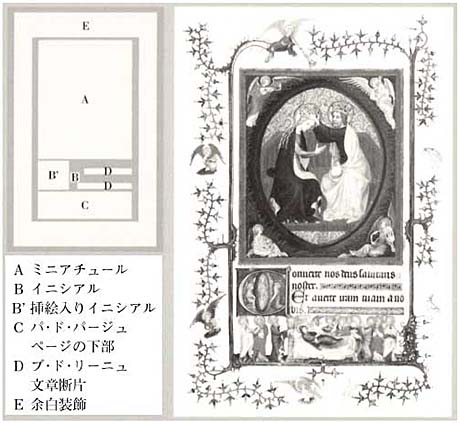 E
A
B'
B
D
D
C
A ミニアチュール
B イニシアル
B' 挿絵入りイニシアル
C パ・ド・パージュ
ページの下部
D ブ・ド・リーニュ
文章断片
E 余白装飾
onuerte nos deus salutaris
noster.
Et auerte iram tuam a no
bis.